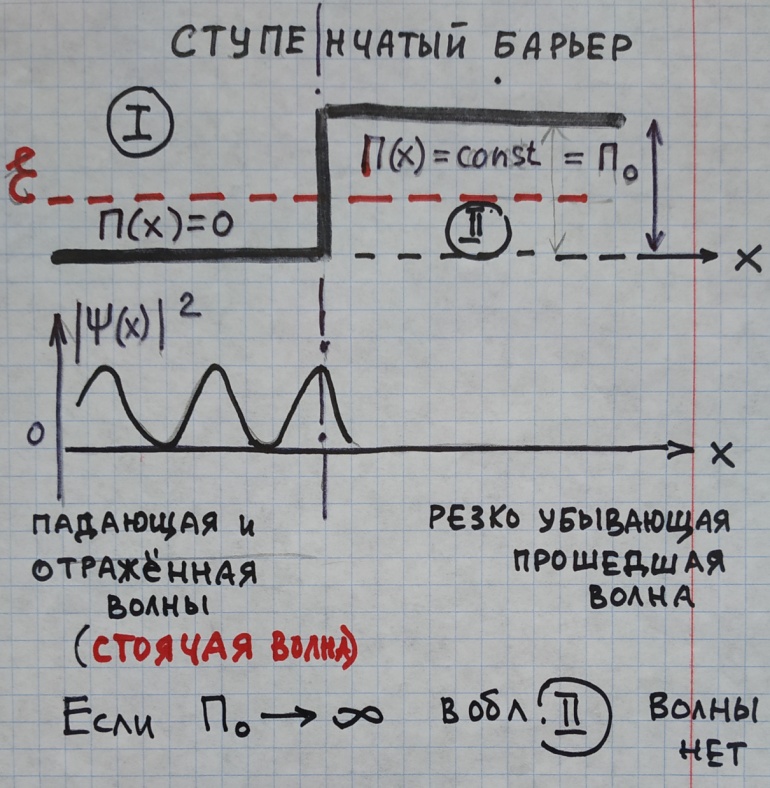 СТУПЕНЧАТЫЙ БАРЬЕР
I
П(x) = const = П₀
Ɛ
П(x)=0
II
x
|Ψ(x)|²
0
x
ПАДАЮЩАЯ и
ОТРАЖЁННАЯ
ВОЛНЫ
(СТОЯЧАЯ ВОЛНА)
РЕЗКО УБЫВАЮЩАЯ
ПРОШЕДШАЯ
ВОЛНА
Если П₀ → ∞ в обл. II ВОЛНЫ
НЕТ